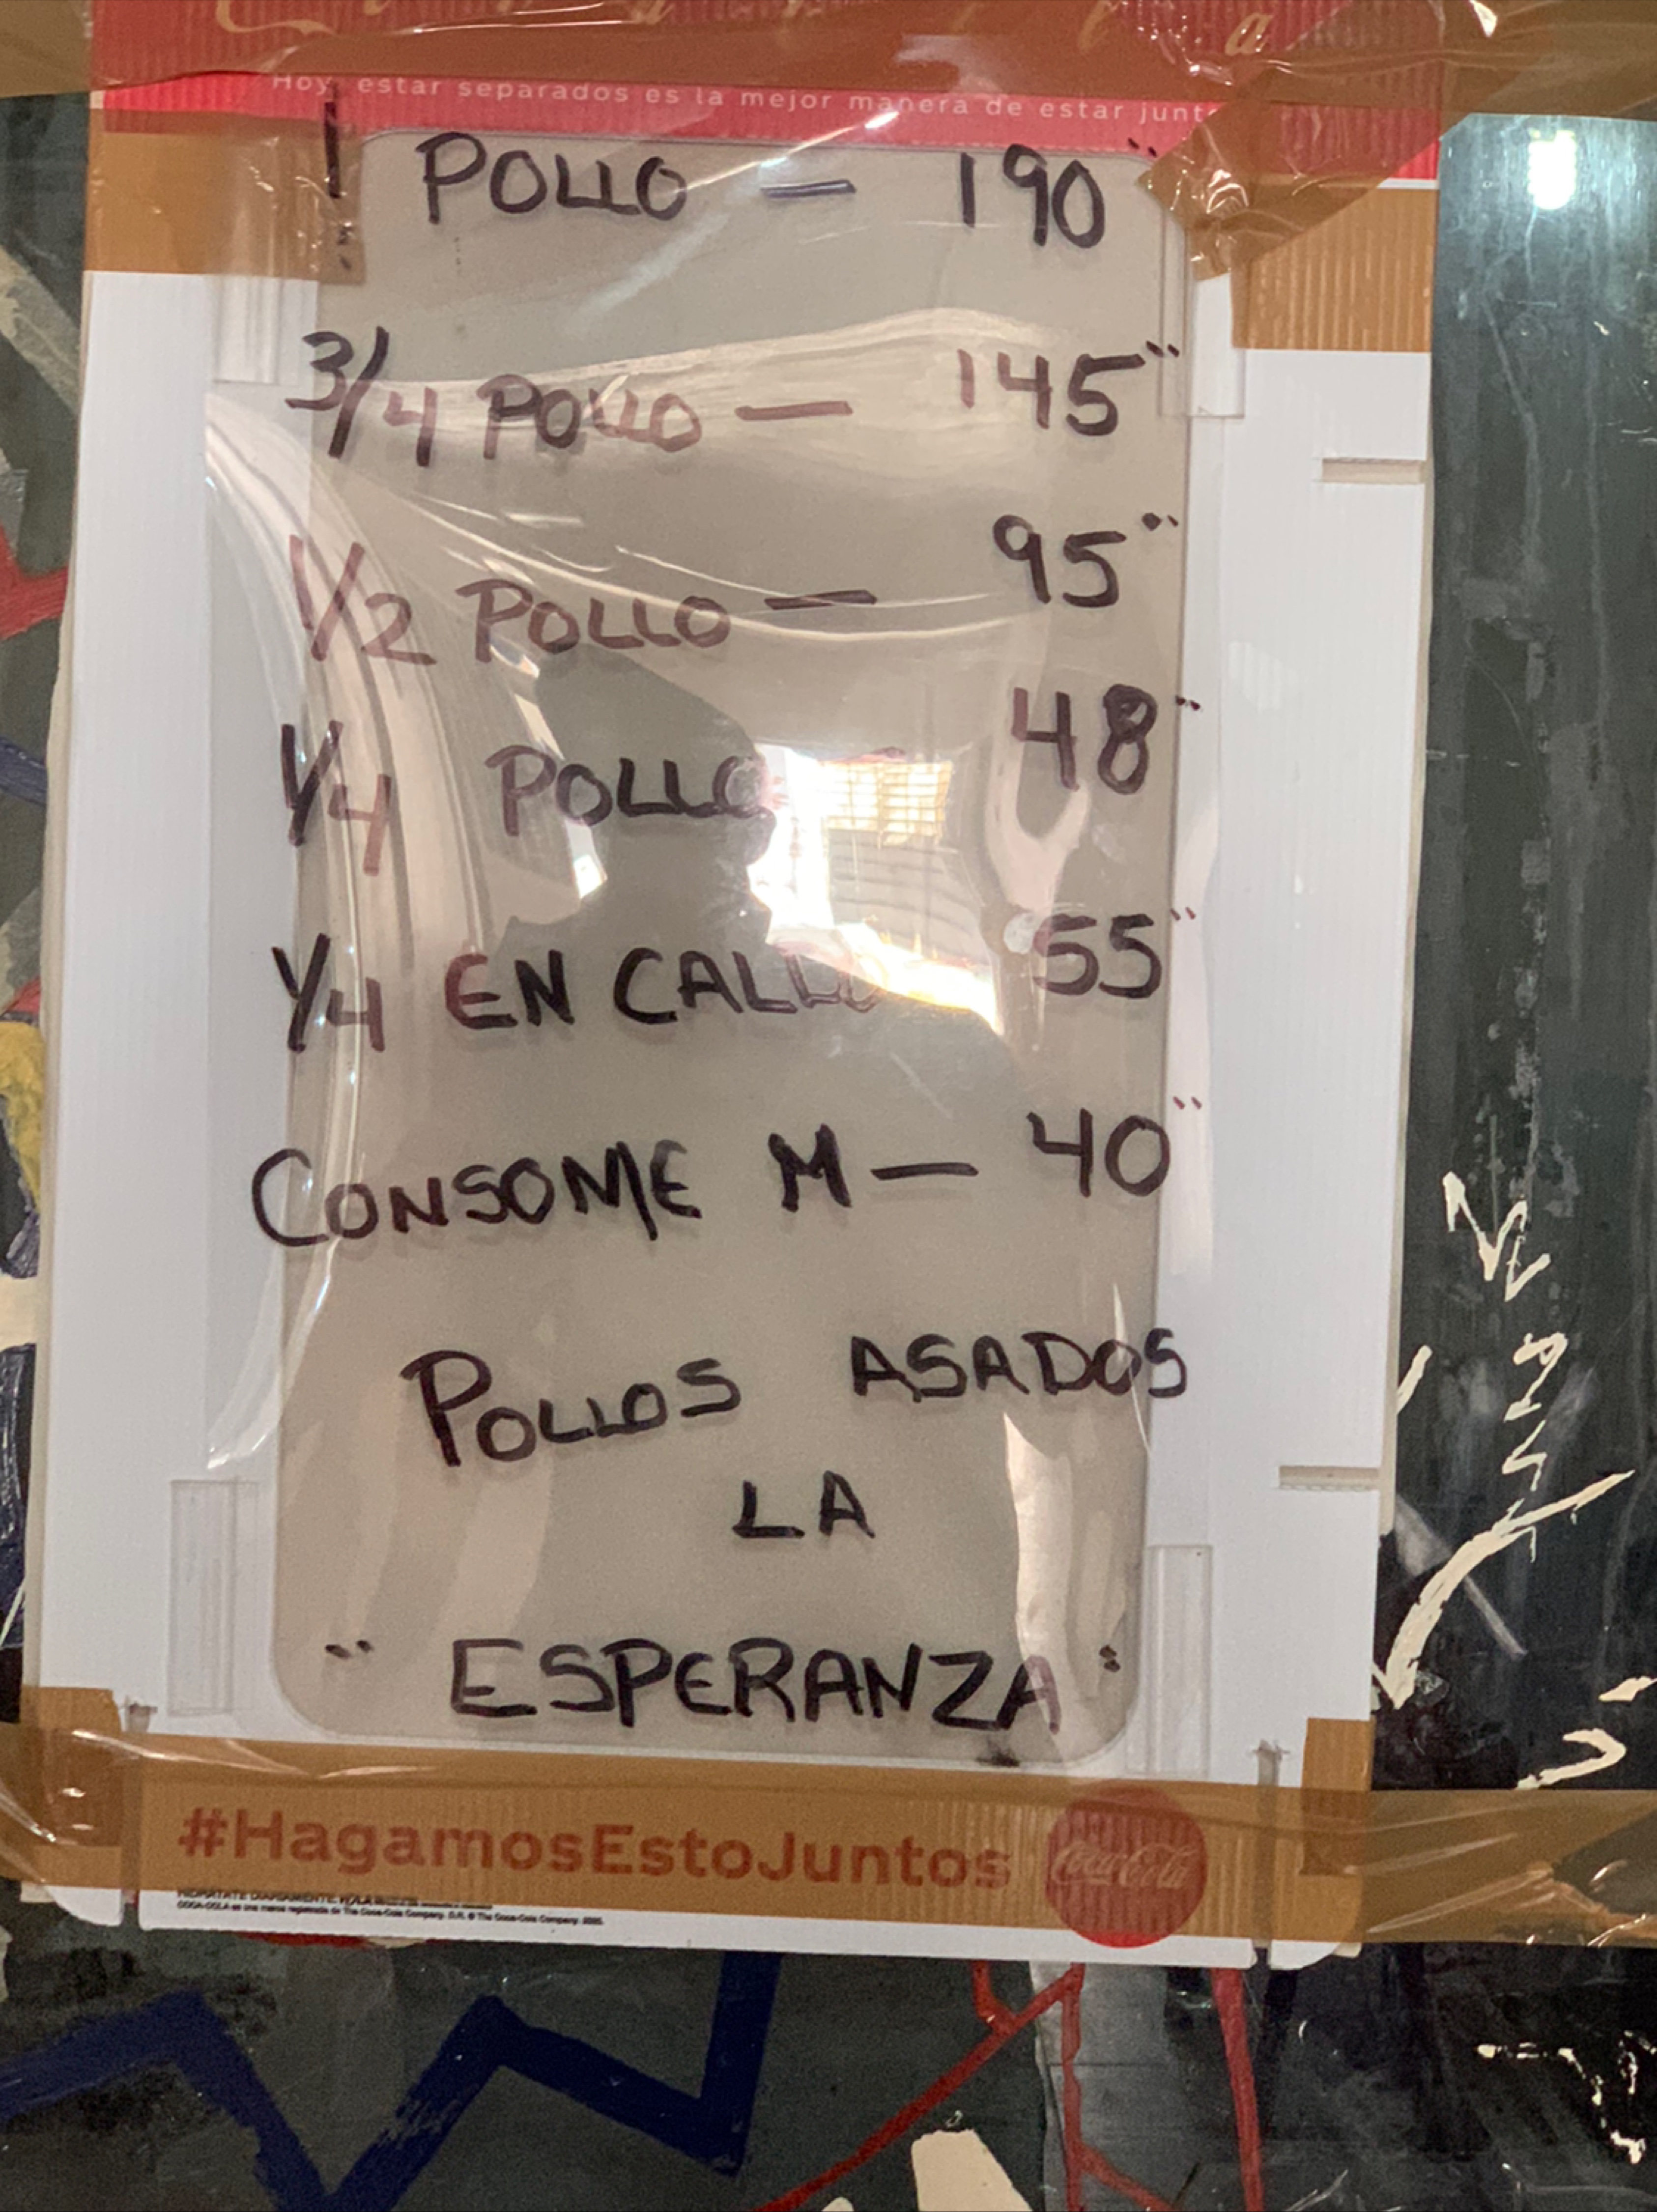 Hoy, estar separados es la mejor manera de estar
1 POLLO — 190"
3/4 POLLO — 145"
1/2 POLLO — 95"
1/4 POLLO 48"
1/4 EN CALLO 55"
CONSOME M — 40"
POLLOS ASADOS
LA
"ESPERANZA"
#HagamosEstoJuntos Coca-Cola
HIDRÁTATE DIARIAMENTE.
COCA-COLA es una marca registrada de The Coca-Cola Company. D.R. © The Coca-Cola Company.